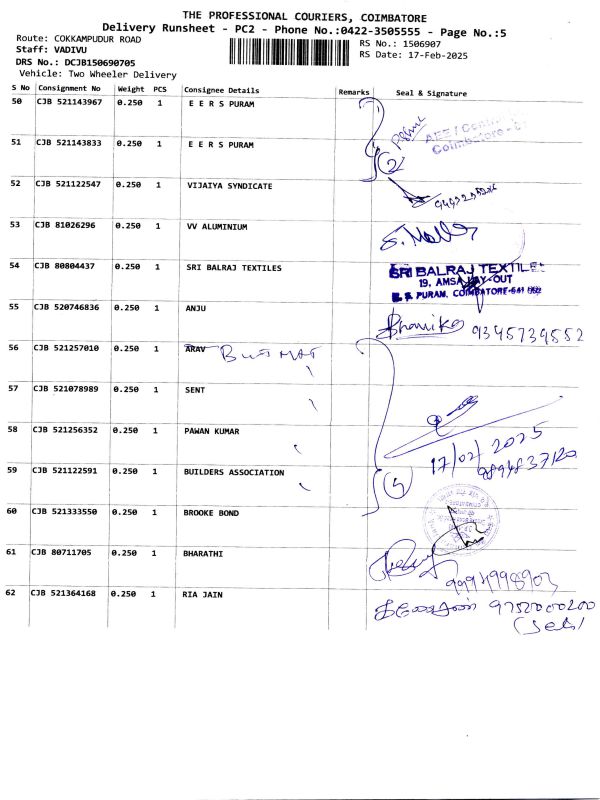 THE PROFESSIONAL COURIERS, COIMBATORE
Delivery Runsheet - PC2 - Phone No.:0422-3505555 - Page No.:5
Route: COKKAMPUDUR ROAD
RS No.: 1506907
Staff: VADIVU
RS Date: 17-Feb-2025
DRS No.: DCJB150690705
Vehicle: Two Wheeler Delivery
S No Consignment No Weight PCS Consignee Details Remarks Seal & Signature
50 CJB 521143967 0.250 1 E E R S PURAM
51 CJB 521143833 0.250 1 E E R S PURAM
AEE /
Coimbatore -
2
52 CJB 521122547 0.250 1 VIJAIYA SYNDICATE
53 CJB 81026296 0.250 1 VV ALUMINIUM
54 CJB 80804437 0.250 1 SRI BALRAJ TEXTILES
SRI BALRAJ TEXTILES
19, AMSA LAY-OUT
R. S. PURAM, COIMBATORE-641 002
55 CJB 520746836 0.250 1 ANJU
Bhamika 9345739552
56 CJB 521257010 0.250 1 ARAV
57 CJB 521078989 0.250 1 SENT
58 CJB 521256352 0.250 1 PAWAN KUMAR
17/02/2025
59 CJB 521122591 0.250 1 BUILDERS ASSOCIATION
60 CJB 521333550 0.250 1 BROOKE BOND
61 CJB 80711705 0.250 1 BHARATHI
62 CJB 521364168 0.250 1 RIA JAIN
9752000200